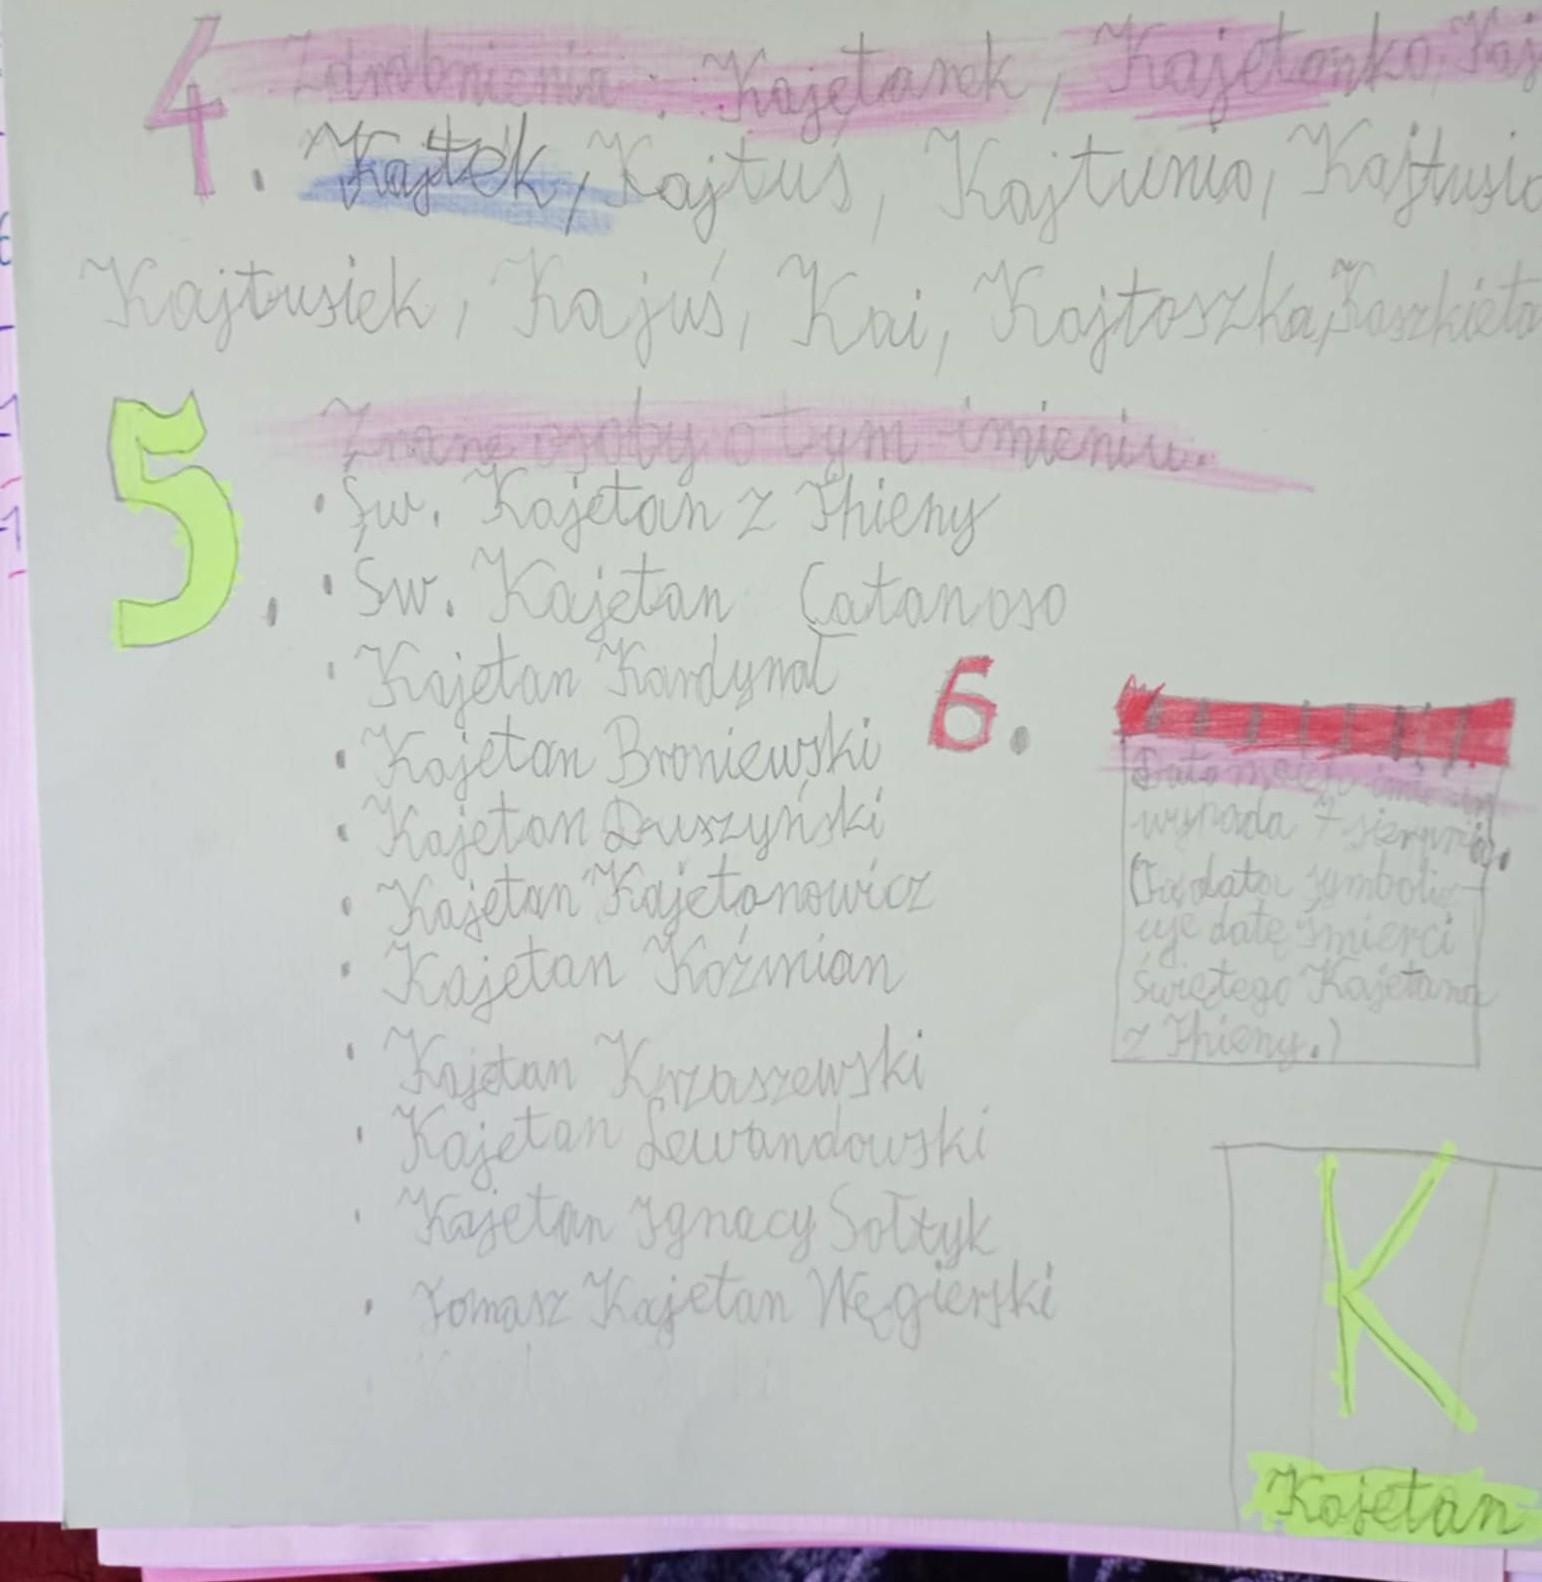 4. Zdrobnienia: Kajetanek, Kajetanko, Kaj
Kajtek, Kajtuś, Kajtunio, Kajtusio
Kajtusiek, Kajuś, Kai, Kajtoszka, Kaszkieta
5. Znane osoby o tym imieniu.
• Św. Kajetan z Thieny
• Św. Kajetan Catanoso
• Kajetan Kardynał
• Kajetan Broniewski
• Kajetan Duszyński
• Kajetan Kajetanowicz
• Kajetan Koźmian
• Kajetan Krzaszewski
• Kajetan Lewandowski
• Kajetan Ignacy Sołtyk
• Tomasz Kajetan Węgierski
6.
Data moich imienin
wypada 7 sierpnia.
(Ta data symboliz-
uje datę śmierci
Świętego Kajetana
z Thieny.)
K
Kajetan